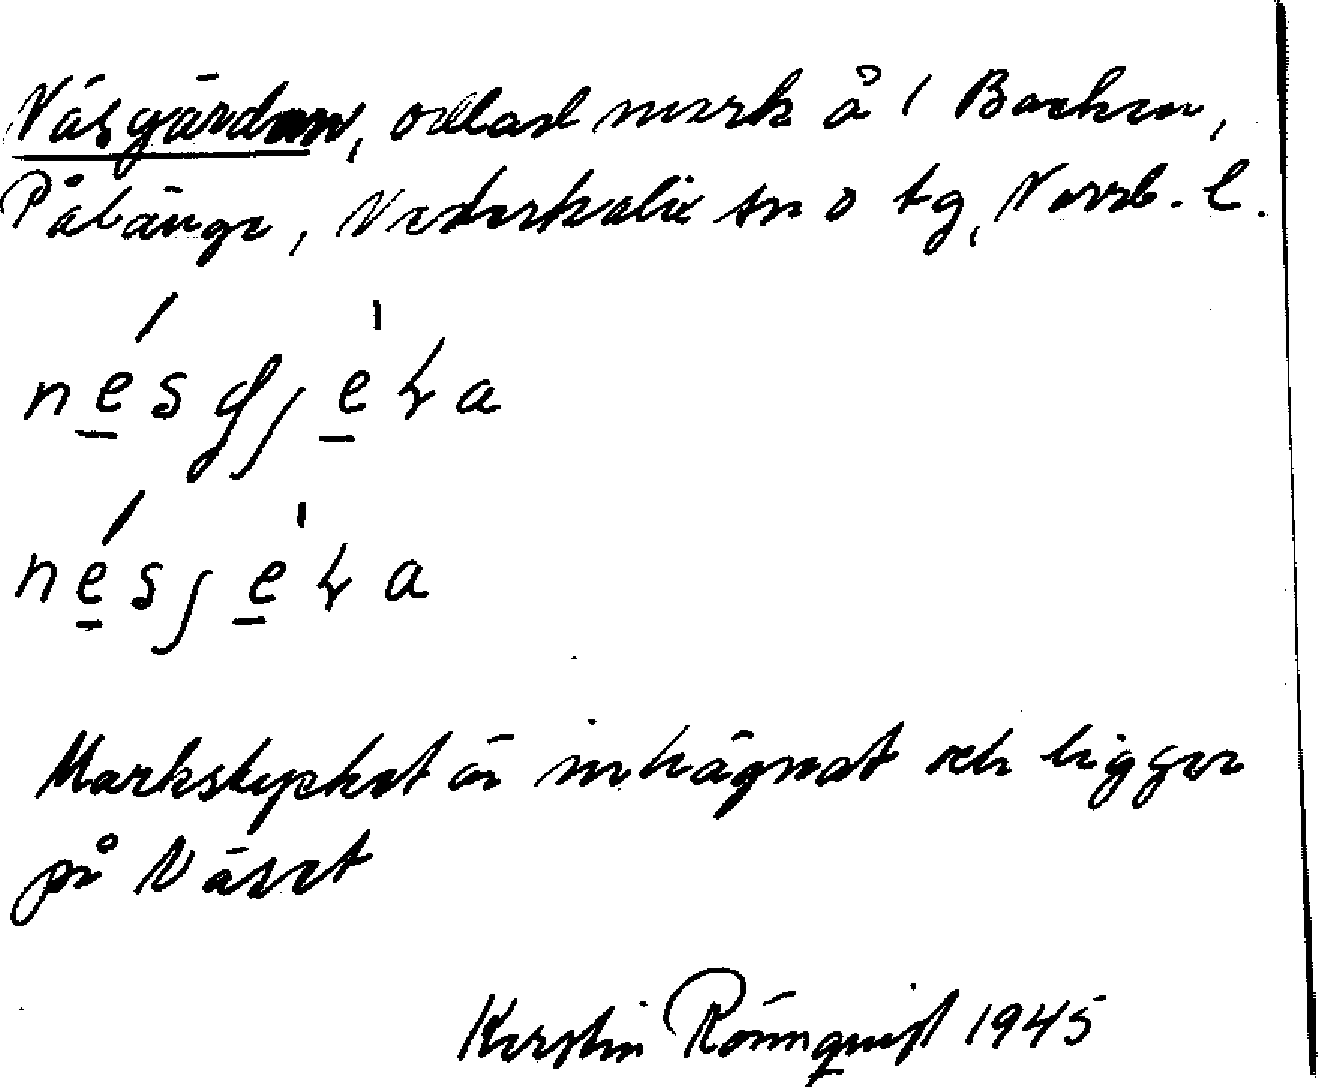 Näsgärdan, odlad mark å 1 Backen,
Pålänge, Nederkalix sn o tg, Norrb. l.
nésgjéka
nésjéka
Markstycket är inhägnat och ligger
på Näset
Kerstin Rönnquist 1945